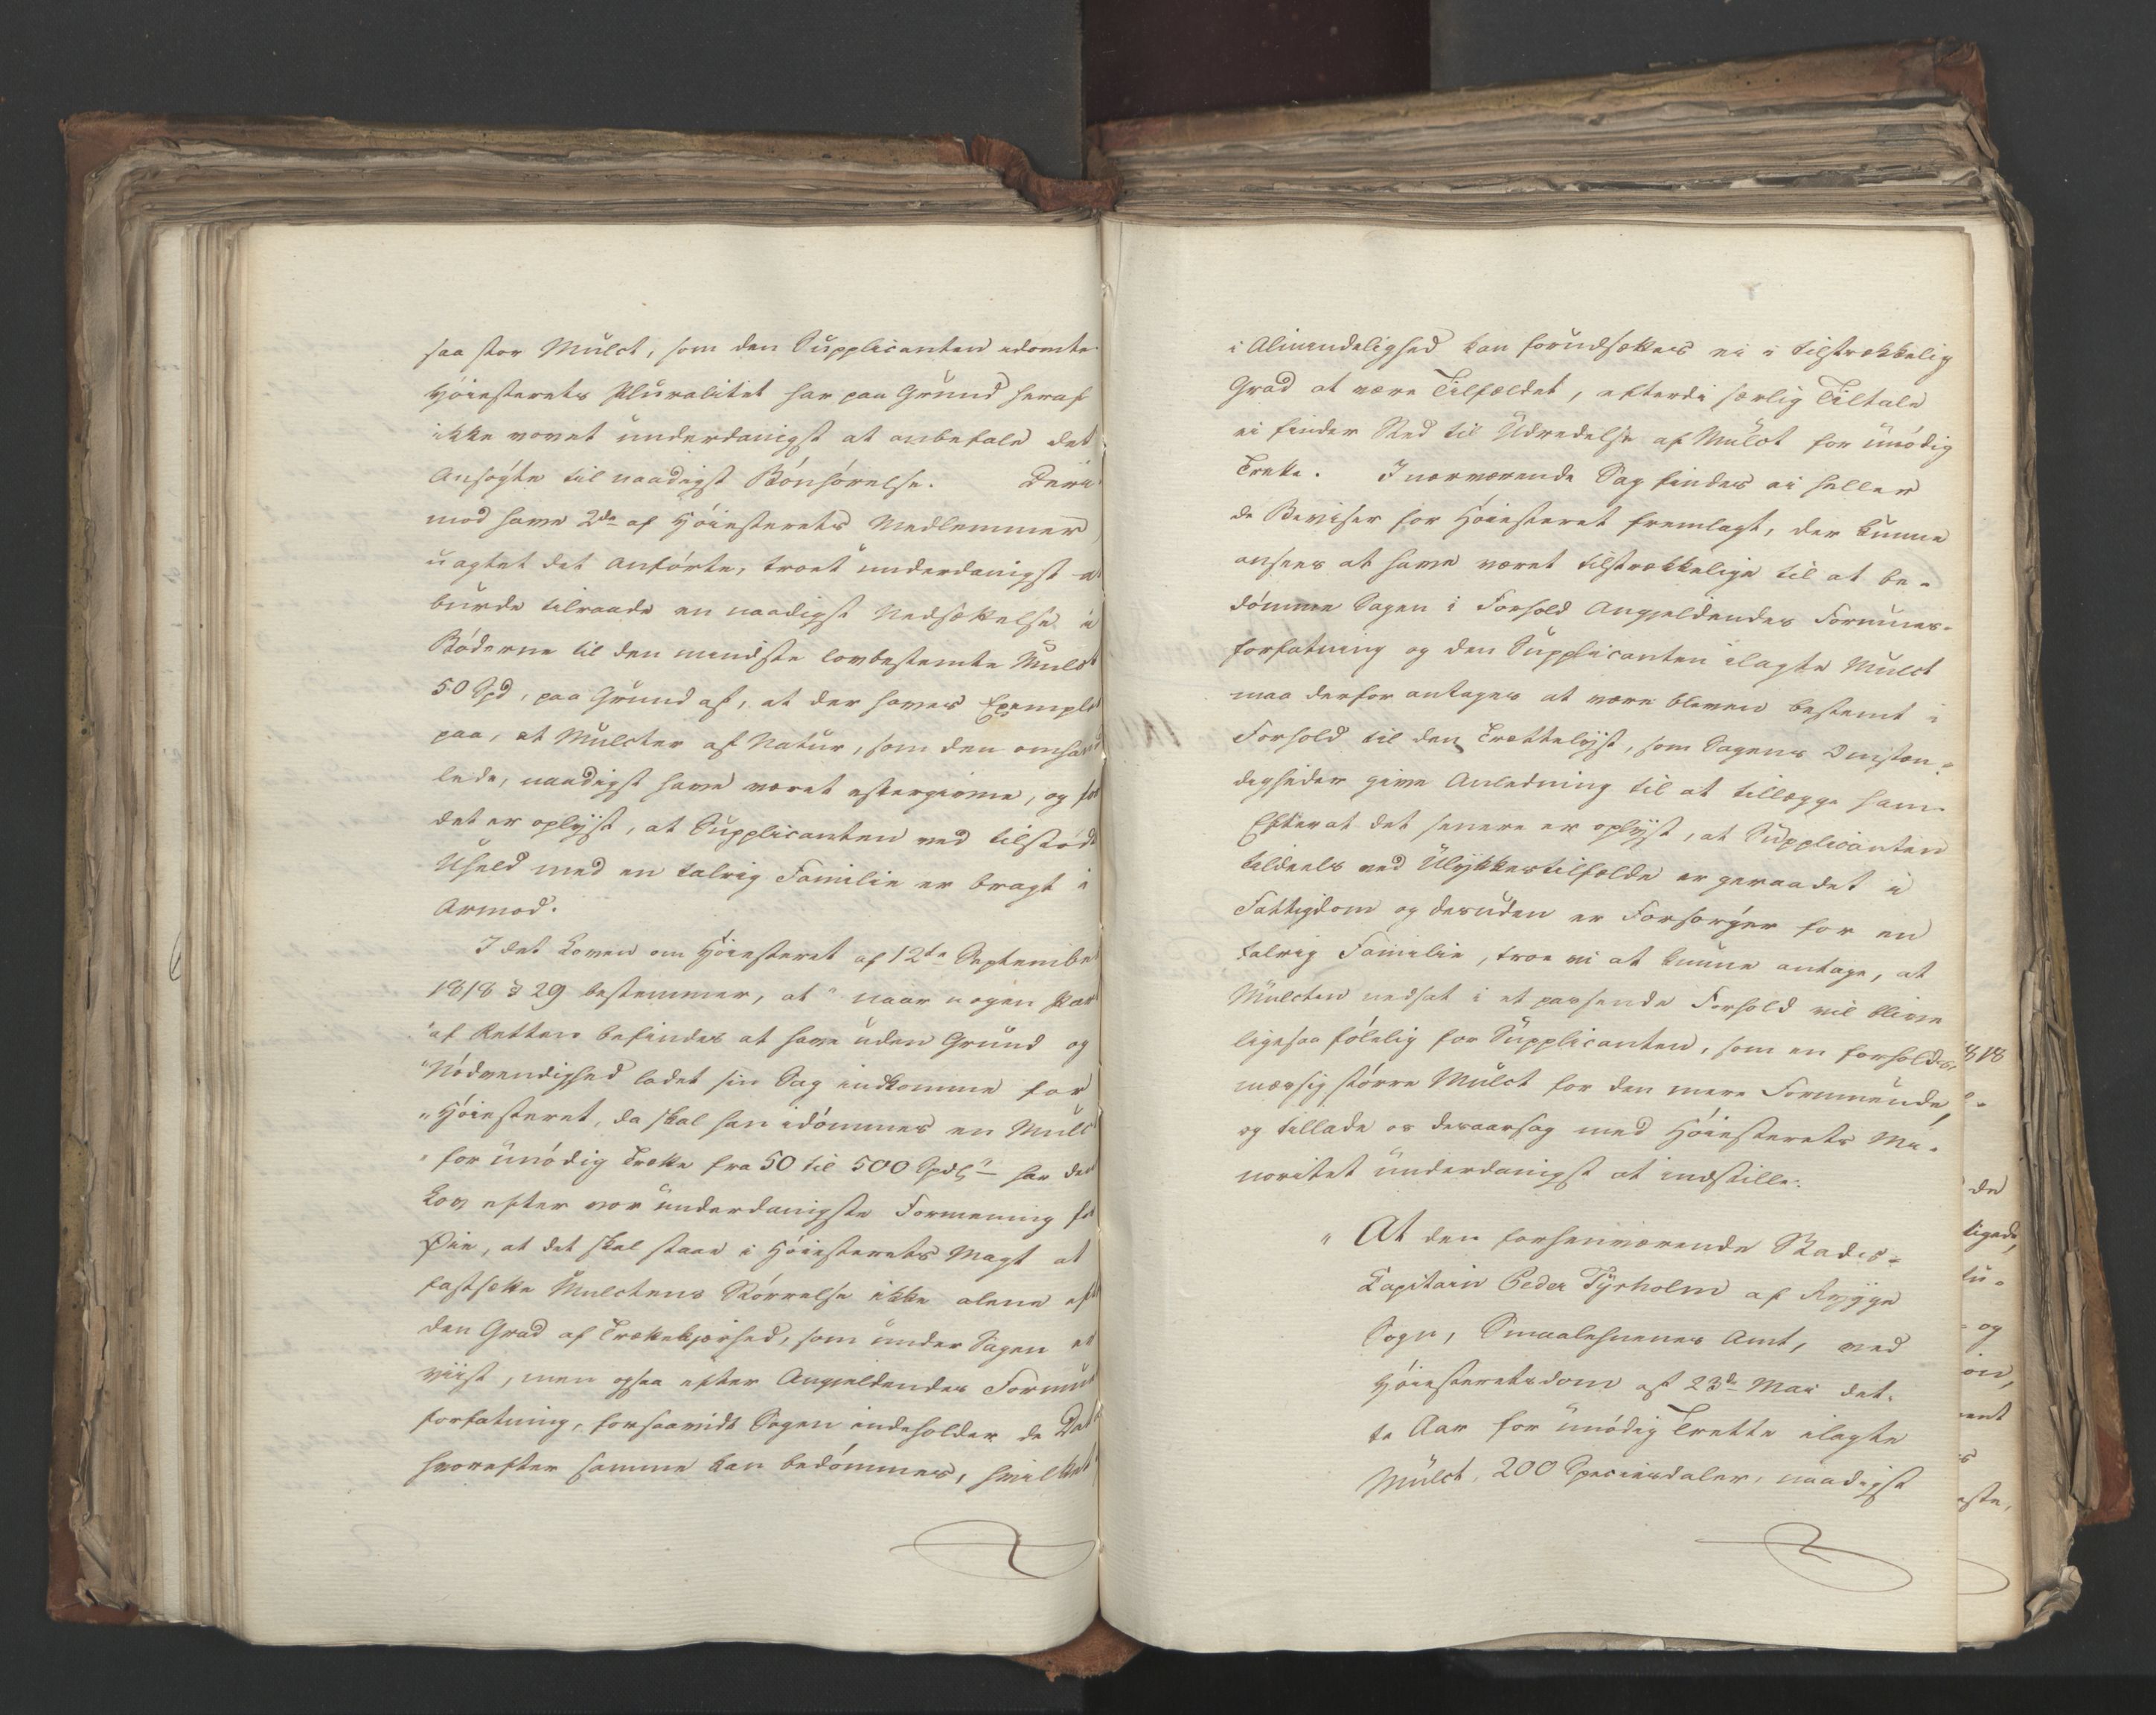 saa stor Mulct, som den Supplicanten idömte.
Höiesterets Pluralitet har paa Grund heraf
ikke vovet underdanigst at anbefale det
Ansögte til naadigst Bönhörelse. Deri
mod have 2de af Höiesterets Medlemmer
uagtet det Anförte, troet underdanigst at
burde tilraade en naadigst Nedsættelse i
Böderne til den mindste lovbestemte Mulct
50 Spd, paa Grund af, at der haves Exempler
paa, at Mulcter af Natur, som den omhand
lede, naadigst have været eftergivne, og for
det er oplyst, at Supplicanten ved tilstödt
Uheld med en talrig Familie er bragt i
Armod.
I det Loven om Höiesteret af 12te September
1818 § 29 bestemmer, at "naar nogen Part
"af Retten befindes at have uden Grund og
"Nödvendighed ladet sin Sag indkomme for
"Höiesteret, da skal han idömmes en Mulct
"for unödig Trætte fra 50 til 500 Spdlr" har den
Lov efter vor underdanigste Formening for
Öie, at det skal staae i Höiesterets Magt at
fastsætte Mulctens Störrelse ikke alene efter
den Grad af Trættekjærhed, som under Sagen er
viist, men ogsaa efter Angjeldendes Formues
forfatning, forsaavidt Sagen indeholder de Data
hvorefter samme kan bedömmes, hvilket
i Almindelighed kan forudsættes ei i tilstrækkelig
Grad at være Tilfældet, efterdi særlig Tiltale
ei finder Sted til Udredelse af Mulct for unödig
Trette. I nærværende Sag findes ei heller
de Beviser for Höiesteret fremlagt, der kunne
ansees at have været tilstrækkelige til at be-
dömme Sagen i Forhold Angjeldendes Formues-
forfatning og den Supplicanten ilagte Mulct
maa derfor antages at være bleven bestemt i
Forhold til den Trættelyst, som Sagens Omstæn-
digheder give Anledning til at tillægge ham.
Efterat det senere er oplyst, at Supplicanten
tildeels ved Ulykkestilfælde er geraadet i
Fattigdom og desuden er Forsörger for en
talrig Familie, troe vi at kunne antage, at
Mulcten nedsat i et passende Forhold vil blive
ligesaa fölelig for Supplicanten, som en forholds-
mæssig större Mulct for den mere Formuende,
og tillade os desaarsag med Höiesterets Mi-
noritet underdanigst at indstille:
" At den forhenværende Stads-
Capitain Peder Tyrholm af Rygge
Sogn, Smaalehnenes Amt, ved
Höiesteretsdom af 23de Mai det-
te Aar for unödig Trette ilagte
Mulct, 200 Speciesdaler, naadigst